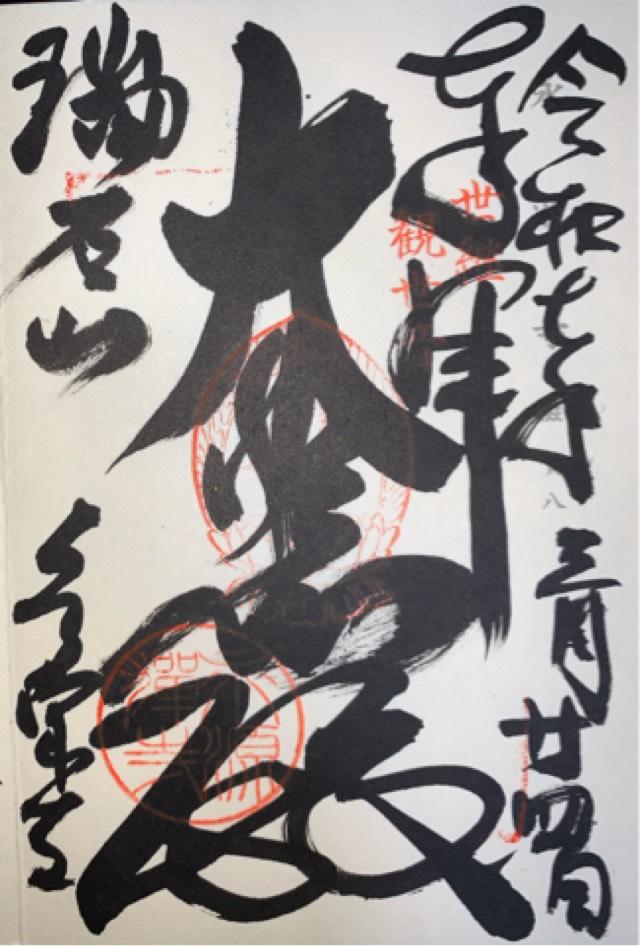 令和七年三月廿四日
奉拝
世継
観世
大悲殿
瑞石山 永源寺